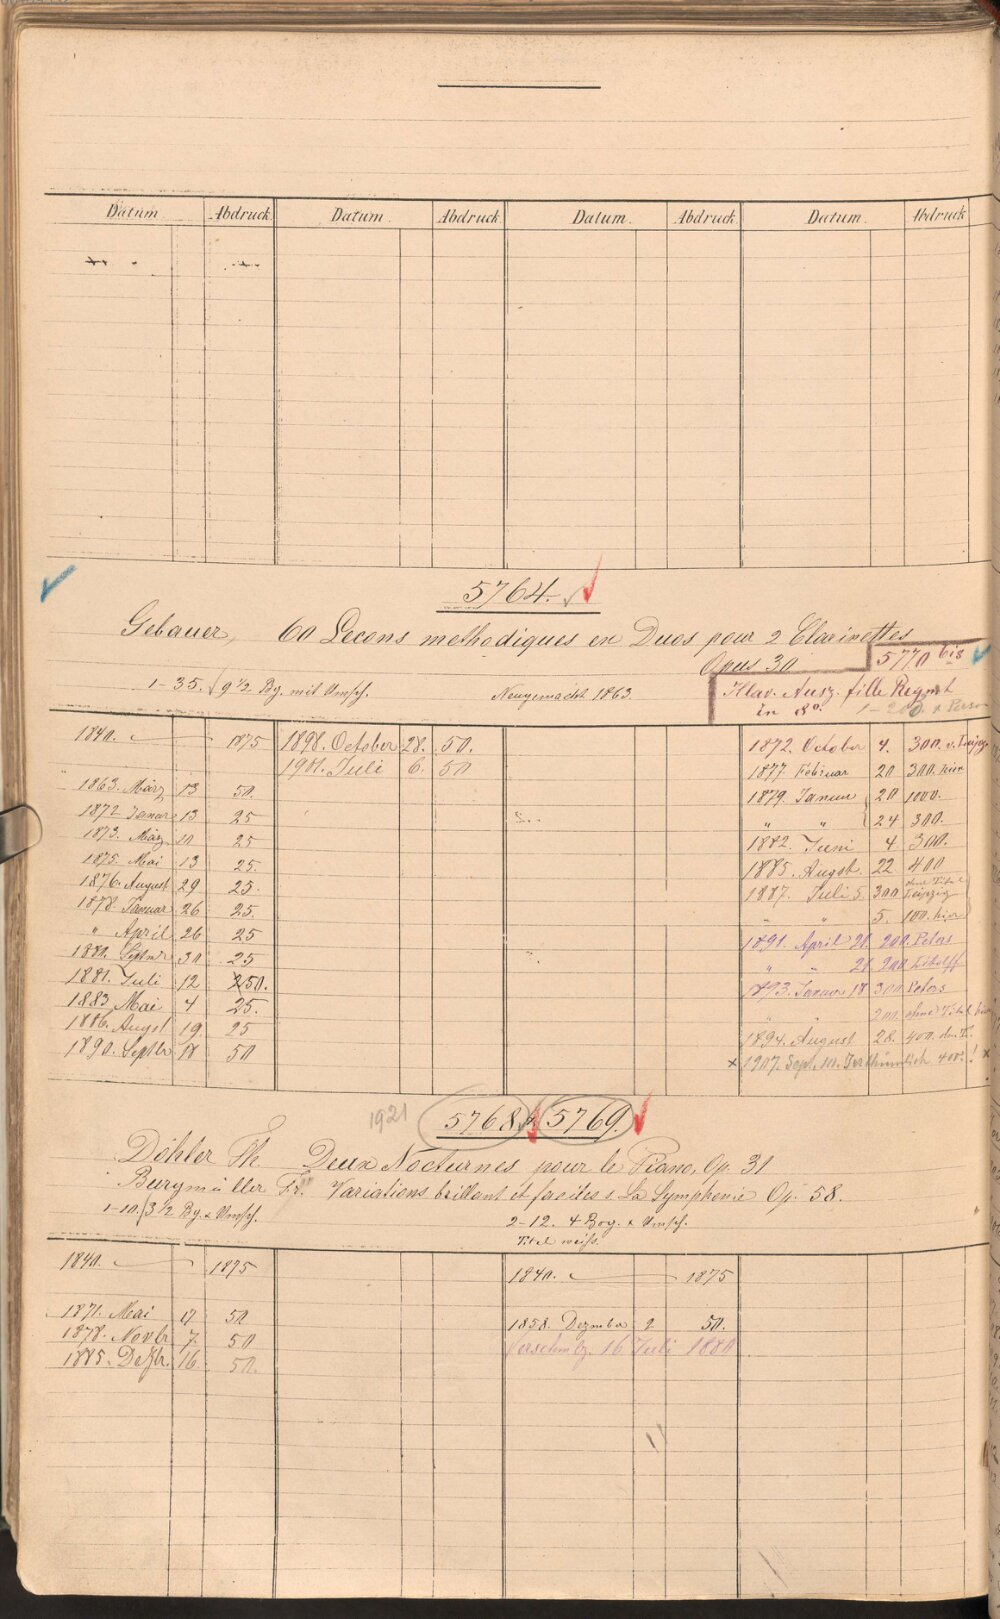 Datum Abdruck Datum Abdruck Datum Abdruck Datum Abdruck
5764.
Gebauer, 60 Lecons methodiques en Duos pour 2 Clarinettes
Opus 30
5770 bis
1-35. 9 1/2 Bg. mit Umsch.
Neugemacht 1863.
Klav. Ausz. fille Regmt
in 8o.
1840. 1875
1863. März 13 50.
1872 Januar 13 25
1873. März 10 25
1875. Mai 13 25.
1876. August 29 25.
1878. Januar 26 25.
" April 26 25
1880. Septbr 30 25
1881. Juli 12 250.
1883 Mai 4 25.
1886. Augst 19 25
1890. Septbr 18 50
1898. October 28. 50.
1901. Juli 6. 50
1872. October 4. 300. v. Leipzg
1877. Februar 20 300. hier
1879. Januar 20 1000.
" " 24 300.
1882. Juni 4 300.
1885. Augst 22 400
1887. Juli 5. 300 ohne Titel Leipzig
" 5. 100. hier
1891. April 21. 200. Peters
" " 21. 200 Litolff
1893. Januar 18 300 Peters
" " 200. ohne Titel hier
1894. August 28. 400. ohne T.
x 1907. Sept. 10. Irrthümlich 400. ! x
1921
5768. & 5769.
Döhler Th. Deux Nocturnes pour le Piano, Op. 31
Burgmüller Fr. Variations brillant et faciles s. La Symphonie Op. 58.
1-10. 3 1/2 Bg. & Umsch.
2-12. 4 Bog. & Umsch.
Titel weiss.
1840. 1875
1871. Mai 17 50
1878. Novbr 7. 50
1885. Dezbr. 16 50.
1840. 1875
1858. Dezember 2 50.
Verschmilz. 16 Juli 1880